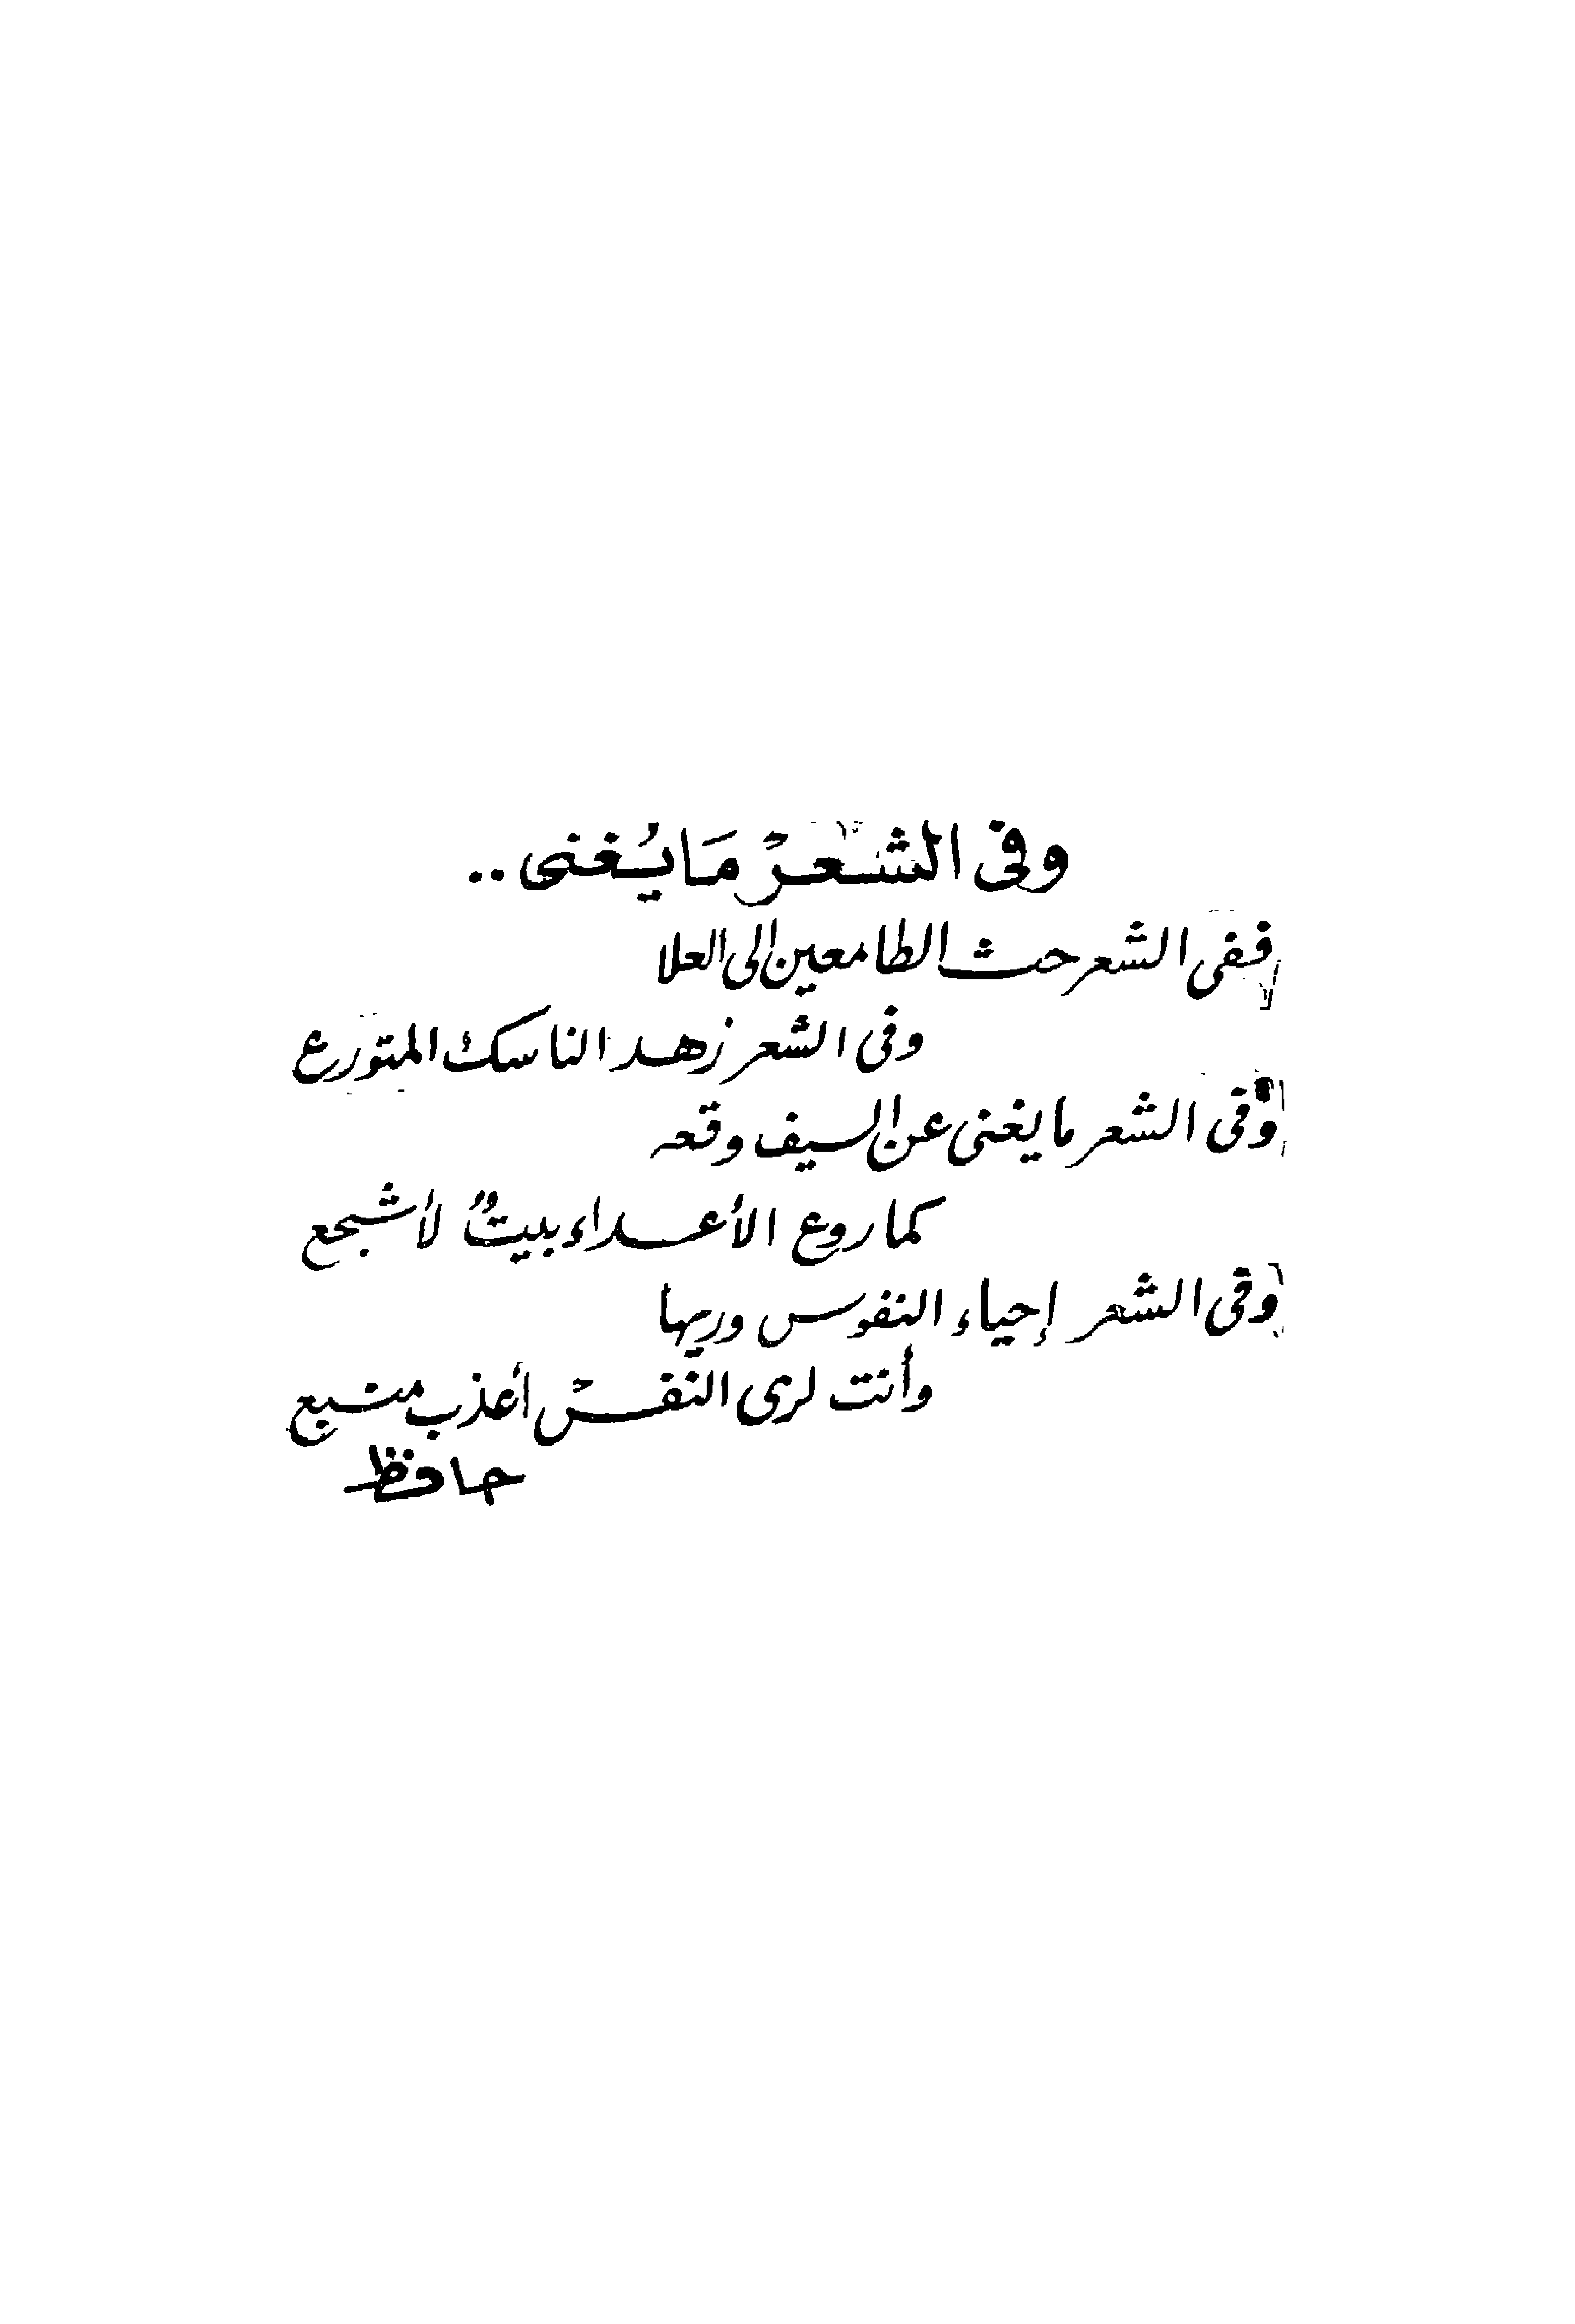 وفى الشعرْ مَا يُغنى ..
ففى الشعر حث الطامعين إلى العلا
وفى الشعر زهد الناسك المتورع
وفى الشعر ما يغنى عن السيف وقعه
كما روع الأعداء بيتٌ لأشجع
وفى الشعر إحياء النفوس وريها
وأنت لرى النفسْ أعذب منبع
حافظ